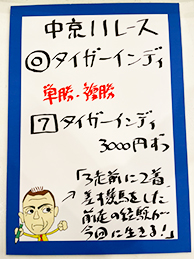 中京11レース
◎タイガーインディ
単勝・複勝
7タイガーインディ
3000円ずつ
「3走前に2着。
前走の経験が
今回に生きる!」